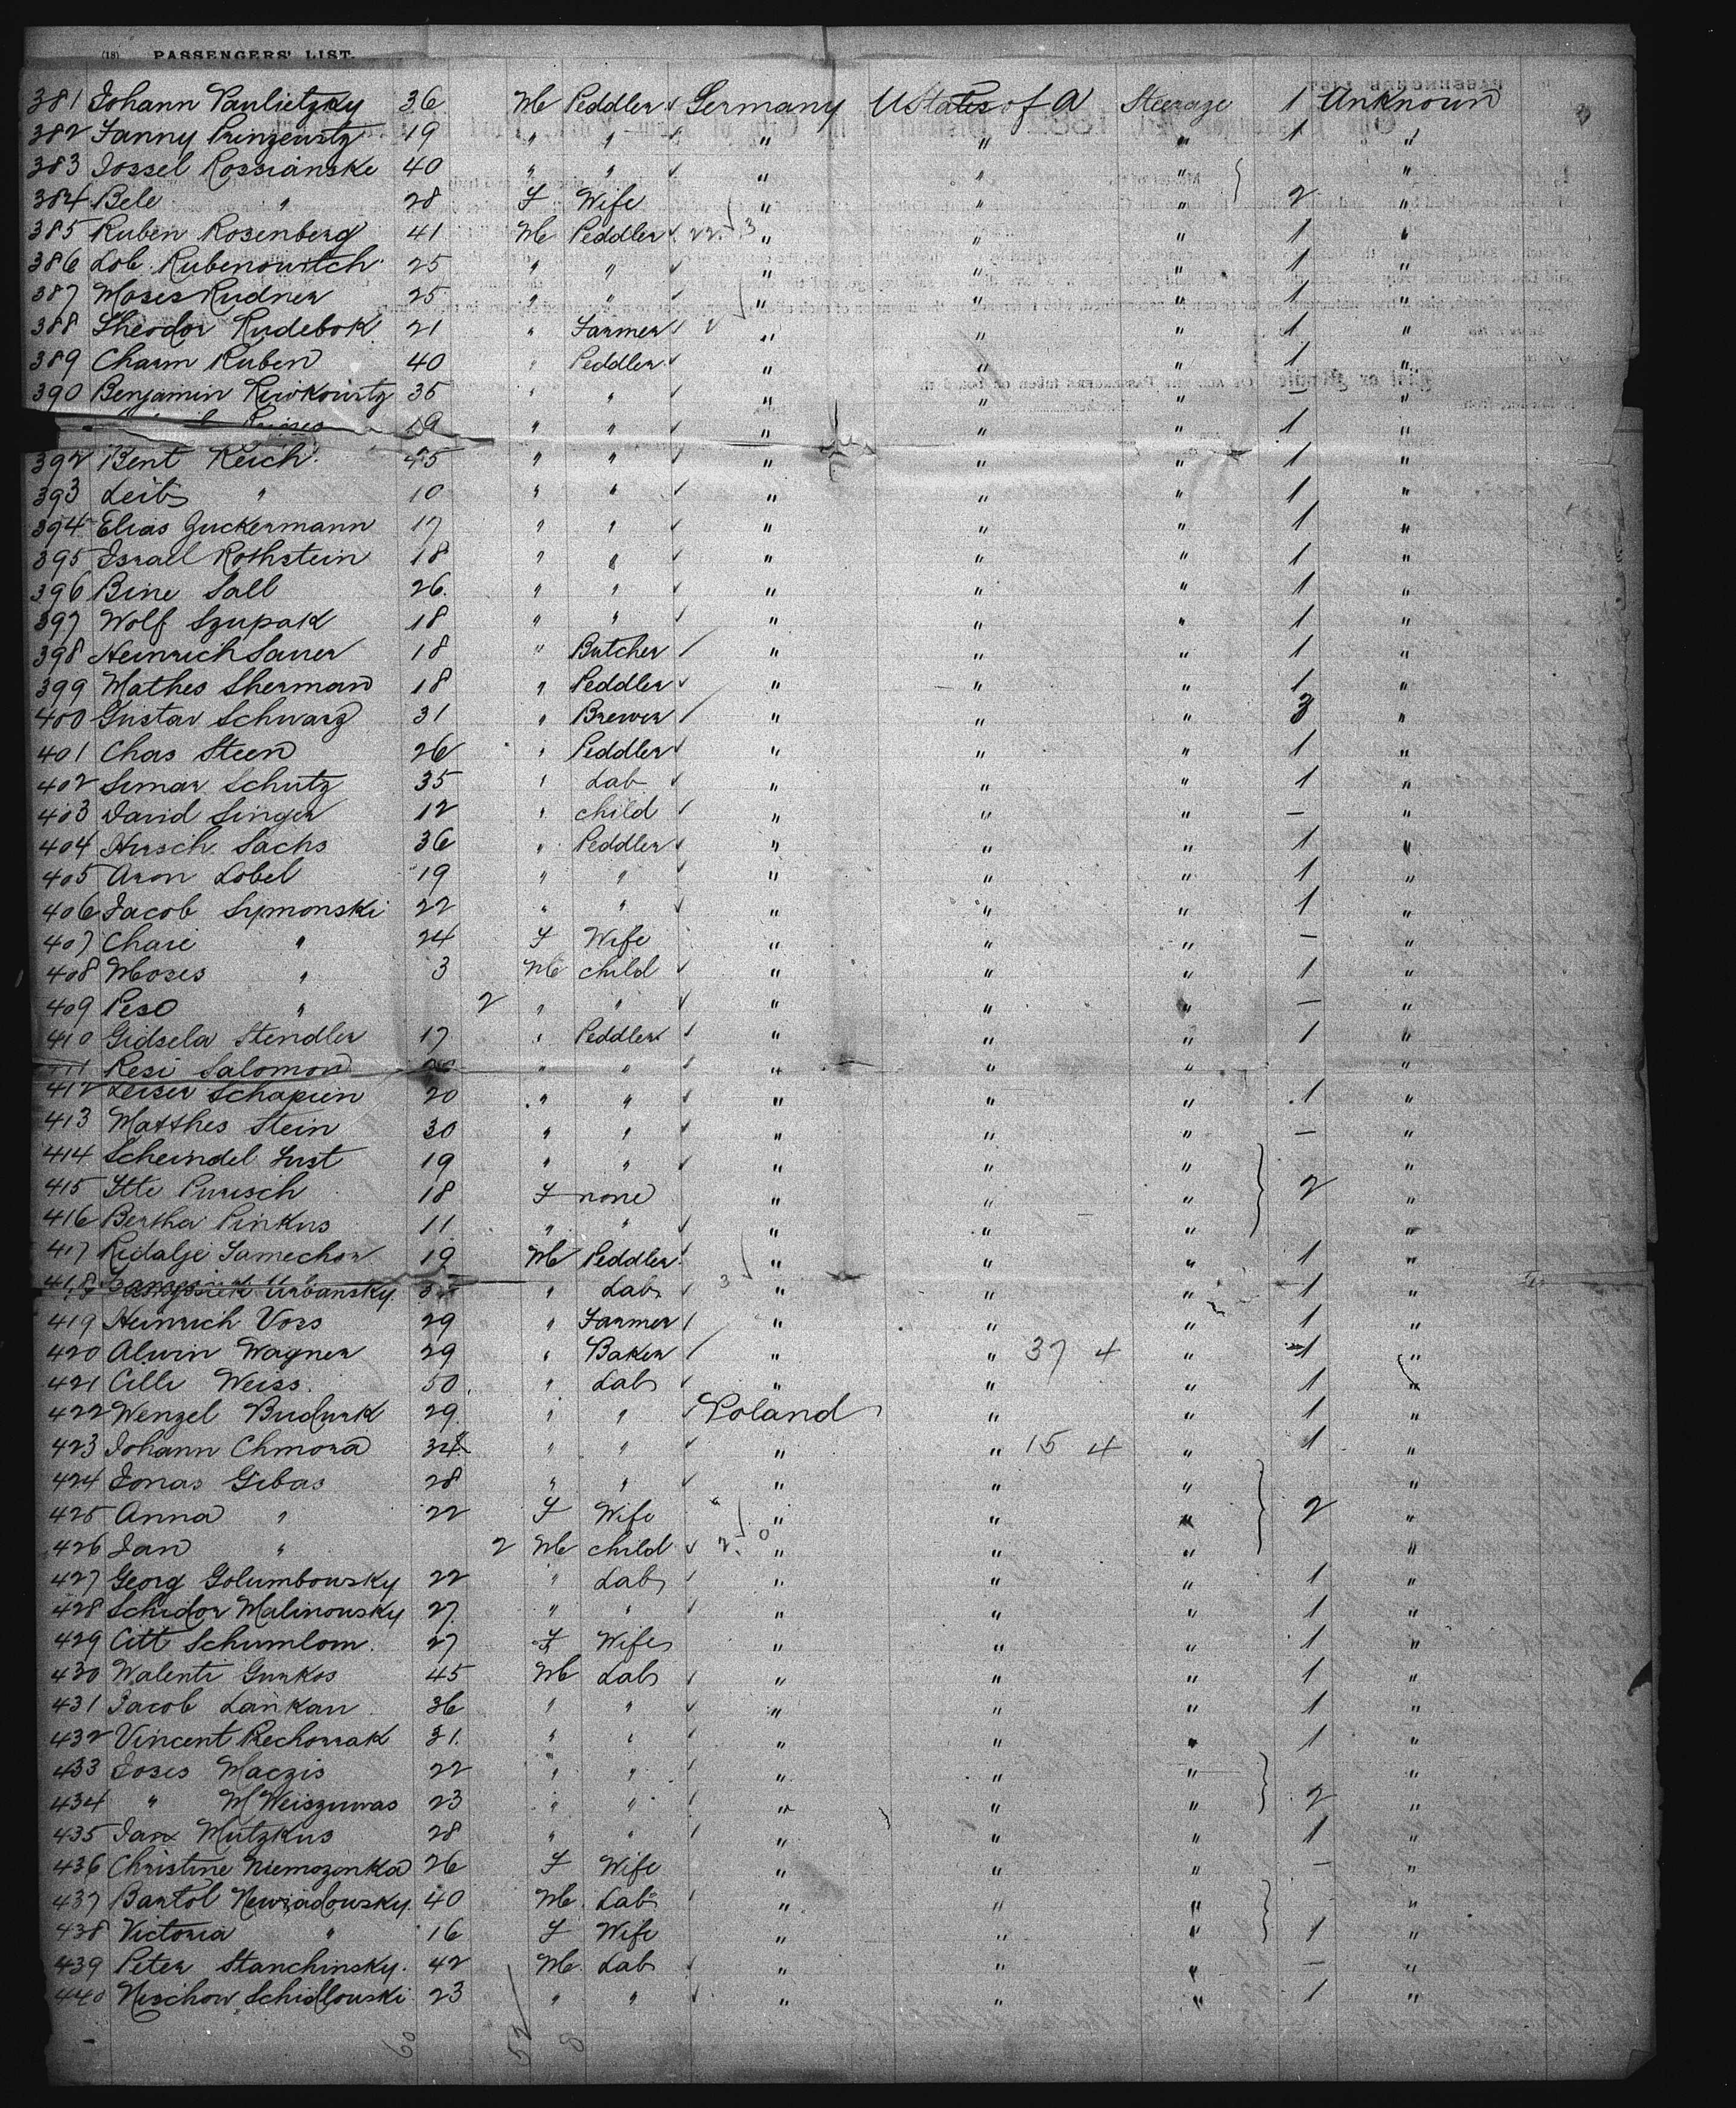 (18) PASSENGERS' LIST.
381 Johann Paulietzky 36 M Peddler Germany U States of A Steerage 1 Unknown
382 Fanny Prinzewitz 19 " " " " " 1 "
383 Jossel Rossianske 40 " " " " " "
384 Bele " 28 F Wife " " " 2 "
385 Ruben Rosenberg 41 M Peddler " " " 1 "
386 Lob Rubenowitch 25 " " " " " 1 "
387 Moses Rudner 25 " " " " " 1 "
388 Theodor Rudebok 21 " Farmer " " " 1 "
389 Charm Ruben 40 " Peddler " " " 1 "
390 Benjamin Rewkowitz 35 " " " " " — "
19 " " " " " 1 "
392 Bent Reich 45 " " " " " 1 "
393 Leib " 10 " " " " " 1 "
394 Elias Zuckermann 17 " " " " " 1 "
395 Israel Rothstein 18 " " " " " 1 "
396 Bine Sall 26 " " " " " 1 "
397 Wolf Szupak 18 " " " " " 1 "
398 Heinrich Sauer 18 " Butcher " " " 1 "
399 Mathes Sherman 18 " Peddler " " " 1 "
400 Gustav Schwarz 31 " Brewer " " " 3 "
401 Chas Steen 26 " Peddler " " " 1 "
402 Simar Schutz 35 " Lab " " " 1 "
403 David Singer 12 " child " " " — "
404 Hirsch Sachs 36 " Peddler " " " 1 "
405 Aron Lobel 19 " " " " " 1 "
406 Jacob Symonski 22 " " " " " 1 "
407 Chaie " 24 F Wife " " " — "
408 Moses " 3 M child " " " 1 "
409 Peso " 2 " " " " " — "
410 Gidsela Stendler 17 " Peddler " " " 1 "
Resi Salomon " " " " " "
412 Leiser Schapien 20 " " " " " 1 "
413 Matthes Stein 30 " " " " " — "
414 Scheindel Lust 19 " " " " " "
415 Itte Purisch 18 F none " " " 2 "
416 Bertha Pinkus 11 " " " " " "
417 Ridalje Samechow 19 M Peddler " " " 1 "
418 Urbansky " Lab " " " 1 "
419 Heinrich Voss 29 " Farmer " " " 1 "
420 Alwin Wagner 29 " Baker " " 37 4 " 1 "
421 Cilli Weiss 50 " Lab " " " 1 "
422 Wenzel Budurk 29 " " Poland " " 1 "
423 Johann Chmora 34 " " " " 15 4 " 1 "
424 Jonas Gibas 28 " " " " " "
425 Anna " 22 F Wife " " " 2 "
426 Jan " 2 M child " " " "
427 Georg Golumbowsky 22 " Lab " " " 1 "
428 Schidor Malinowsky 27 " " " " " 1 "
429 Citt Schumlom 27 F Wife " " " 1 "
430 Walenti Gurkos 45 M Lab " " " 1 "
431 Jacob Lankau 36 " " " " " 1 "
432 Vincent Rechorrak 31 " " " " " 1 "
433 Joses Maczis 22 " " " " " "
434 " M Weiszuwas 23 " " " " " 2 "
435 Jan Mutzkus 28 " " " " " 1 "
436 Christine Niemozonka 26 F Wife " " " — "
437 Bartol Newiadowsky 40 M Lab " " " "
438 Victoria " 16 F Wife " " " 1 "
439 Peter Stanchinsky 42 M Lab " " " — "
440 Nischow Schidlouski 23 " " " " " 1 "
60 52 8